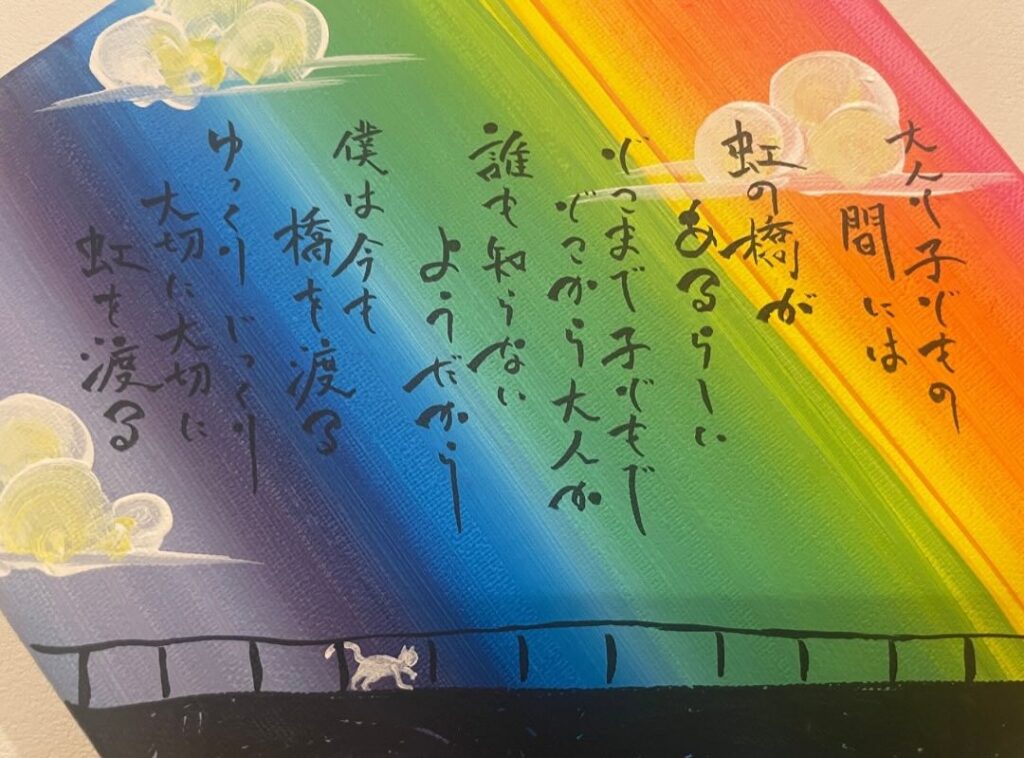 大人と子どもの
間には
虹の橋が
あるらしい
どこまで子どもで
どこから大人か
誰も知らない
ようだから
僕は今も
橋を渡る
ゆっくりじっくり
大切に大切に
虹を渡る